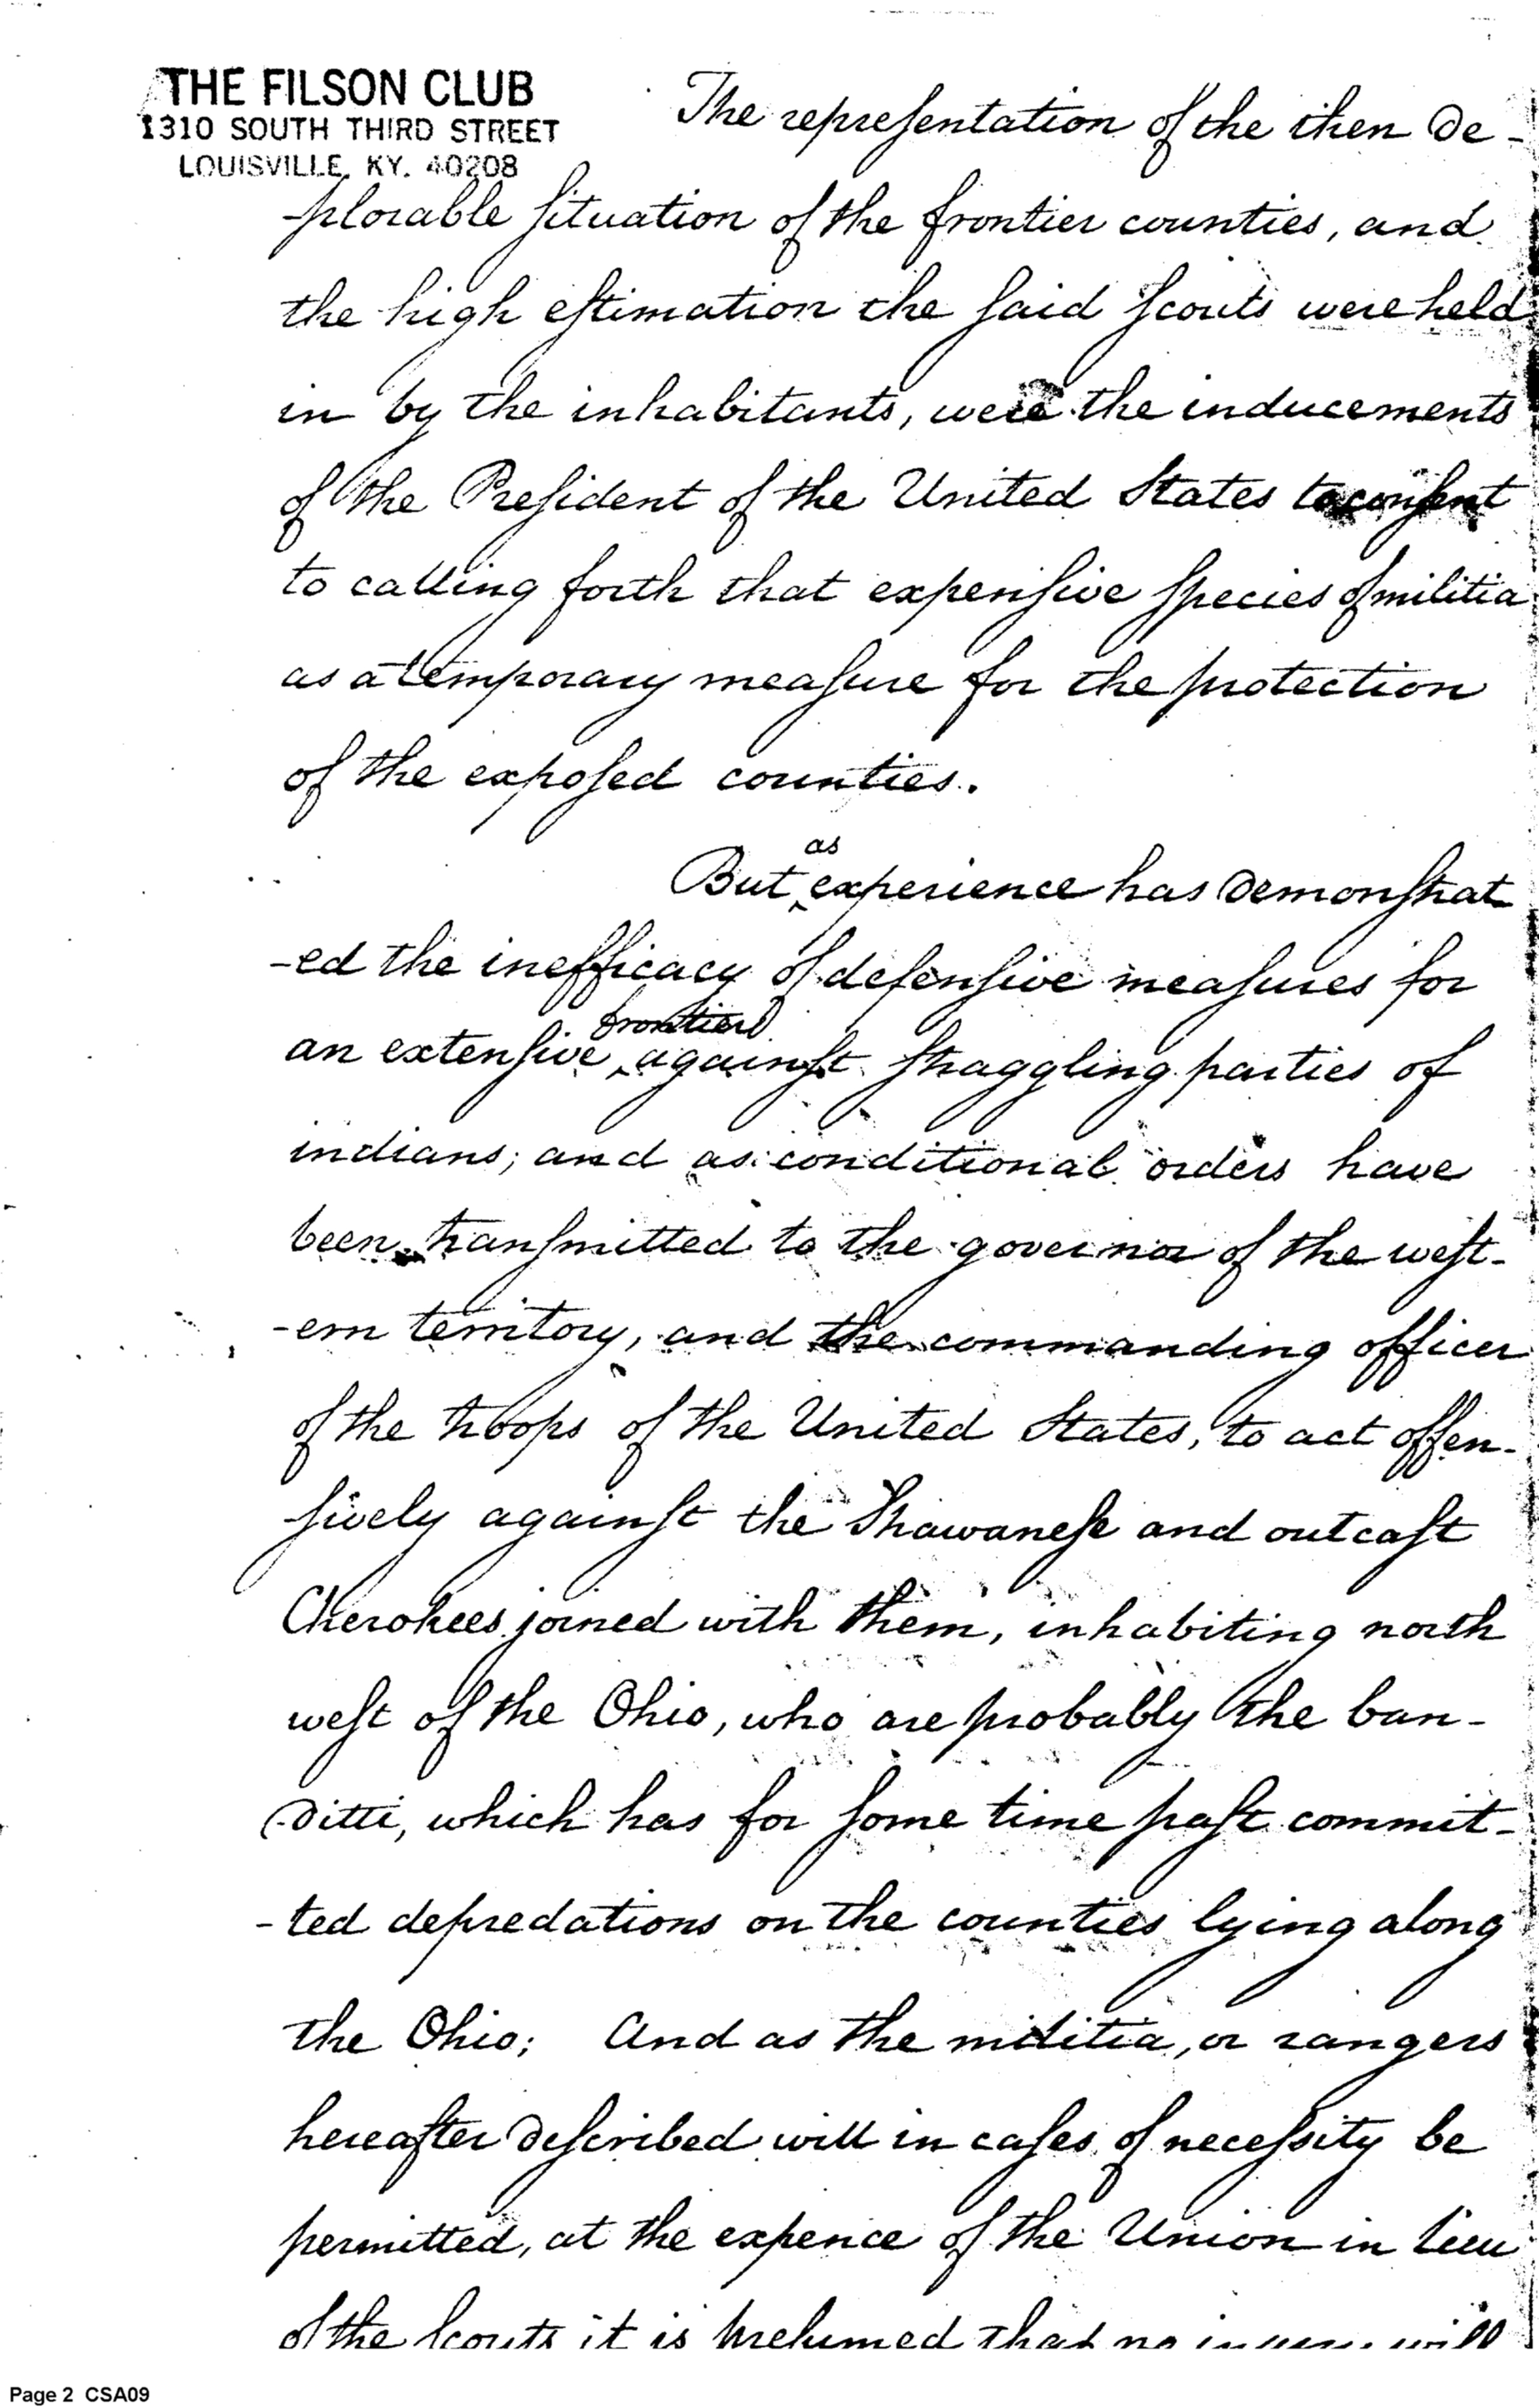 THE FILSON CLUB
1310 SOUTH THIRD STREET
LOUISVILLE, KY. 40208
The repreſentation of the then de-
-plorable ſituation of the frontier counties, and
the high eſtimation the ſaid ſcouts were held
in by the inhabitants, were the inducements
of the Preſident of the United States to conſent
to calling forth that expenſive ſpecies of militia
as a temporary meaſure for the protection
of the expoſed counties.
as
But experience has demonſtrat
-ed the inefficacy of defenſive meaſures for
frontier
an extenſive againſt ſtraggling parties of
indians; and as conditional orders have
been tranſmitted to the governor of the weſt-
-ern territory, and the commanding officer
of the troops of the United States, to act offen-
ſively againſt the Shawaneſe and outcaſt
Cherokees joined with them, inhabiting north
weſt of the Ohio, who are probably the ban-
ditti, which has for ſome time paſt commit-
-ted depredations on the counties lying along
the Ohio; And as the militia, or rangers
hereafter deſcribed will in caſes of neceſsity be
permitted, at the expence of the Union in lieu
of the ſcouts it is preſumed that no will
Page 2 CSA09